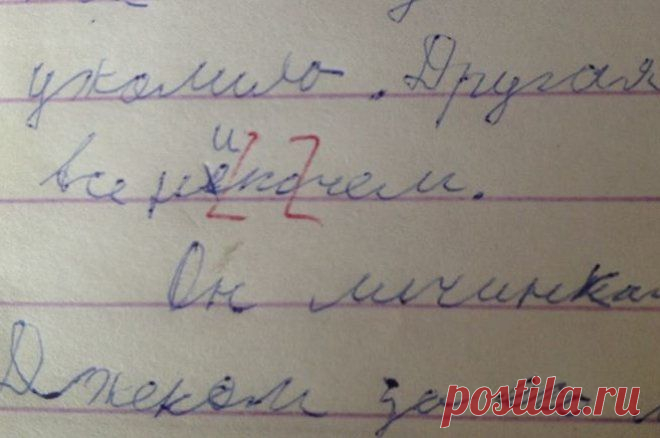 укололо. Другая
все никочем.
Он личинка
Джеком за
postila.ru